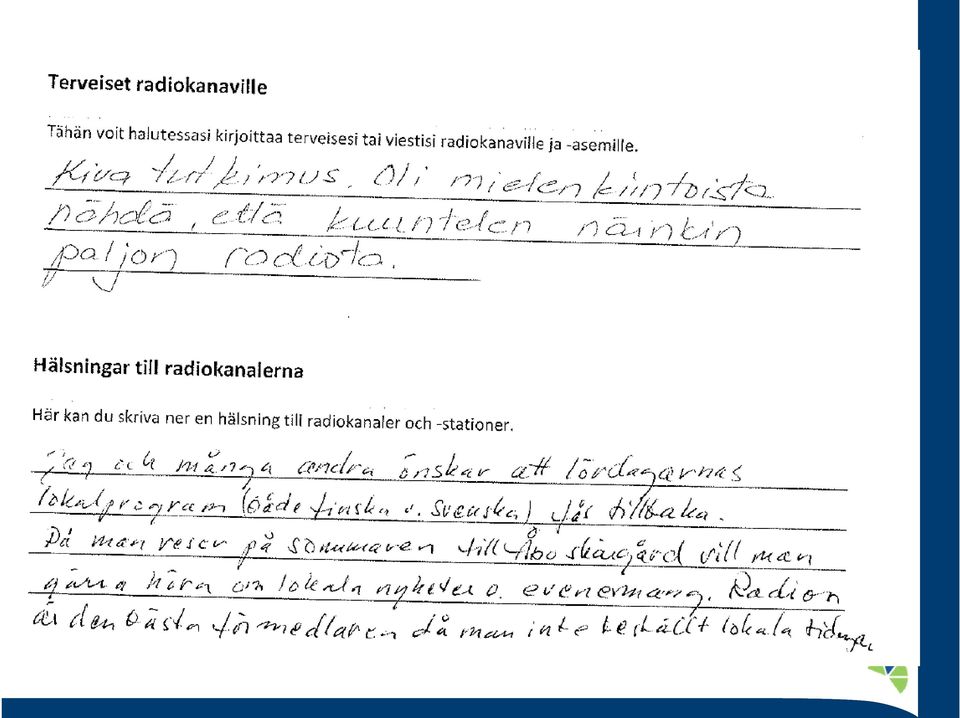 Terveiset radiokanaville
Tähän voit halutessasi kirjoittaa terveisesi tai viestisi radiokanaville ja -asemille.
Kiva tutkimus. Oli mielenkiintoista
nähdä, että kuuntelen näinkin
paljon radiota.
Hälsningar till radiokanalerna
Här kan du skriva ner en hälsning till radiokanaler och -stationer.
Jag och många andra önskar att lördagarnas
lokalprogram (både finska o. svenska) fås tillbaka.
Då man reser på sommaren till Åbo skärgård vill man
gärna höra om lokala nyheter o. evenemang. Radion
är den bästa förmedlaren då man inte beställt lokala tidningar